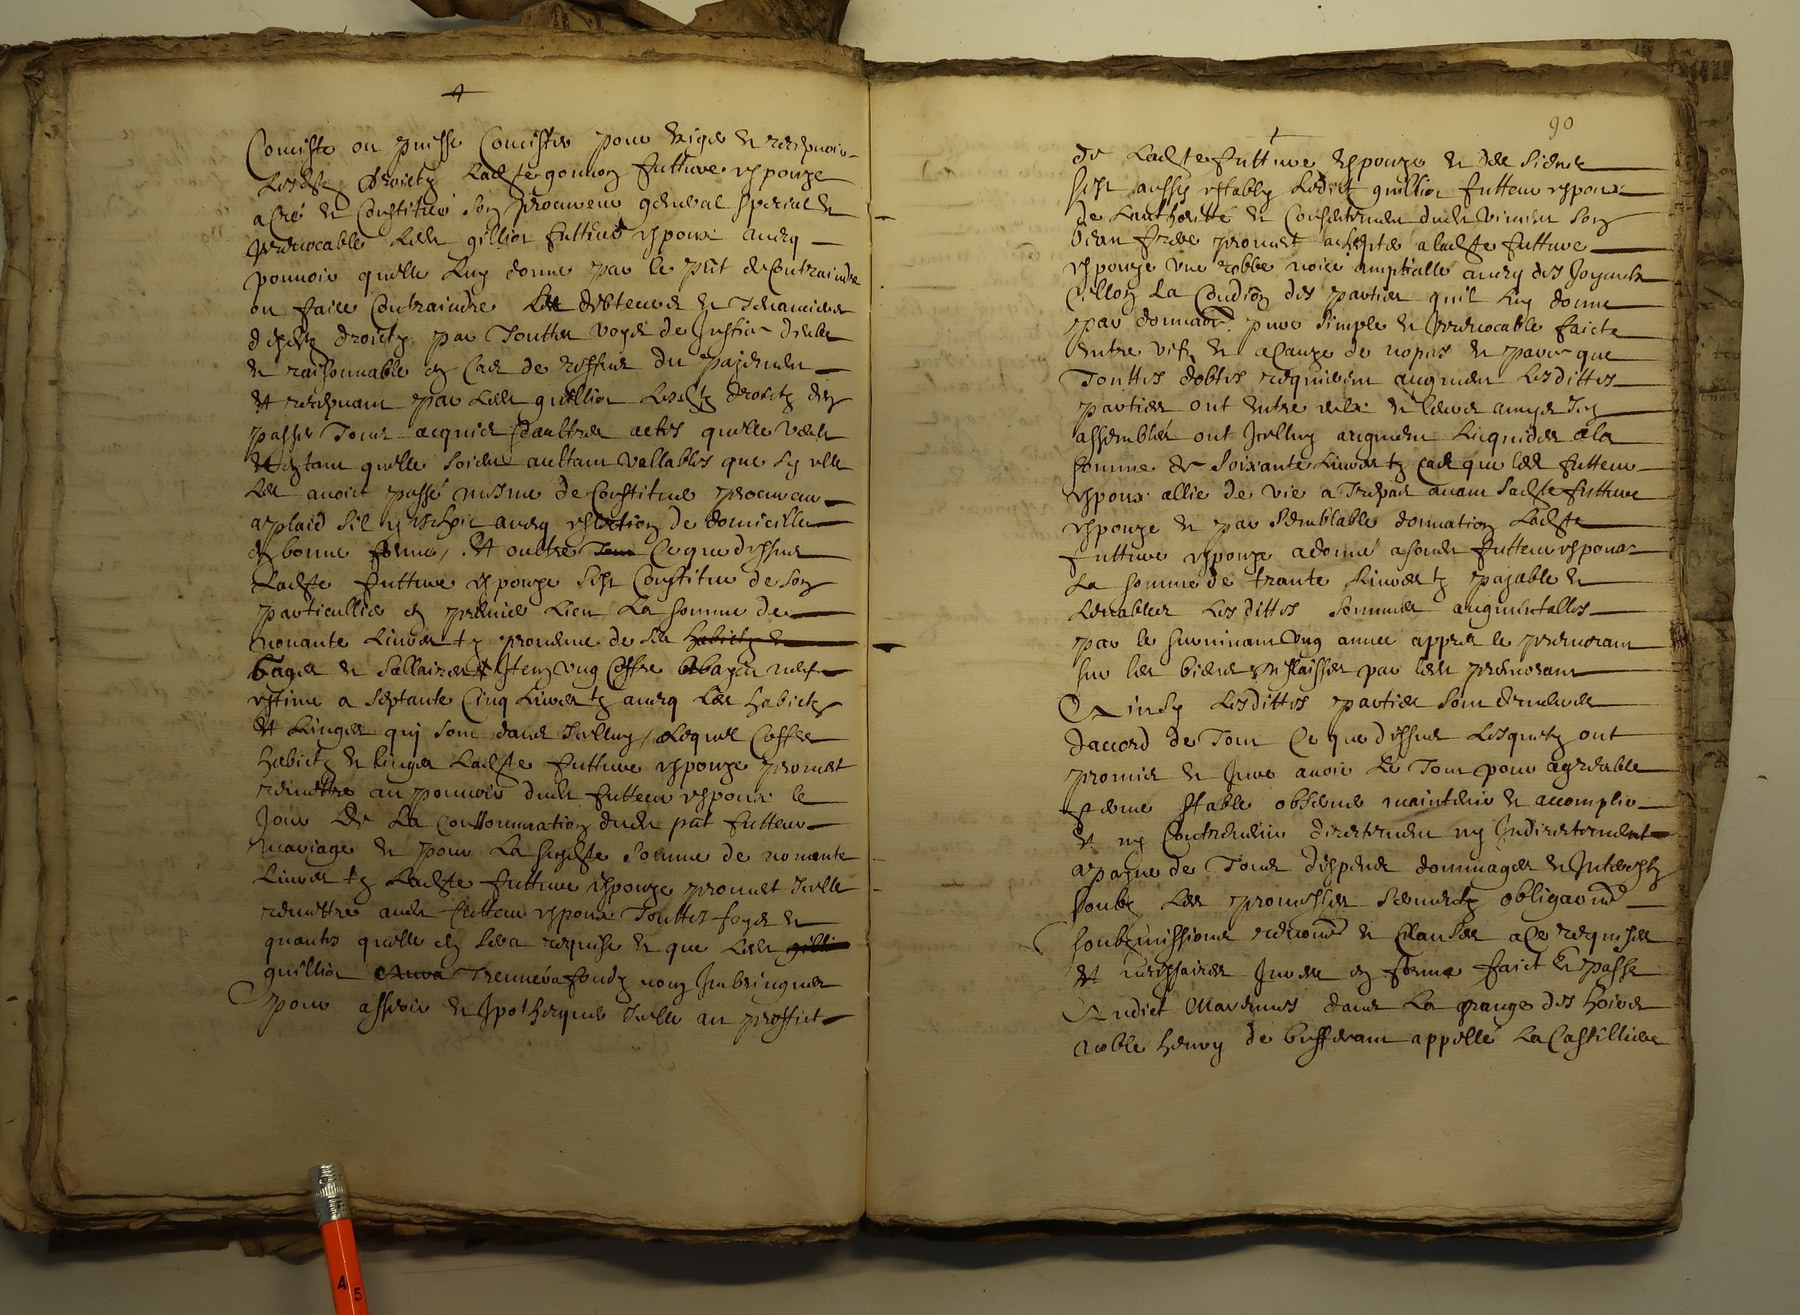 Consiste ou puisse Consister pour Exiger et recepvoir
Lesdts droictz Ladste gonnon futture espouze
a Créé et Constitué Son procureur general special et
irrevocable Ledt gillior futteur espoux avecq
pouvoir quelle Luy donne par le pnt de Contraindre
ou faire Contraindre Les debteurs et Tenanciers
desdts droictz par Touttes voyes de Justice deues
et raisonnable en Cas de reffus du payement
et recepvant par Ledt guillior Lesdts droictz den
passer Tous acquis daultres actes quelle veult
estant quelle Soient aultant vallables que Sy elle
Les avoict passé mesme de Constituer procureur
a plaid Sil avecq eslection de domicille
en bonne forme, Et oultre Ce que dessus
Ladste futture espouze Sest Constitue de Son
particullier en premier Lieu La somme de
nonante Livres tz provenue de Ses
bagues et Sallaires Et Item Ung Coffre neuf
estime a Septante Cinq Livres tz avecq Les habictz
et Linges quj sont dans Icelluy, Lequel Coffre
habictz et linges Ladste futture espouze promet
remettre au pouvoir dudt futteur espoux le
Jour de La Consommation dudt pnt futteur
mariage et pour La susdste somme de nonante
Livres tz Ladste futture espouze promet Icelle
remettre audt futteur espoux Touttes foys et
quantes quelle en Sera requise et que Ledt
guillior Treuvera fondz non Imbringues
pour asseoir et Ipothequer Icelle au proffict
90
de Ladste futture espouze et des Siens
Sest aussy estably Ledict guillior futteur espoux
de Lauthorité et Consentement dudt Vincent Son
frere promet achepter a ladste futture
espouze Une robbe noire nuptialle avecq des Joyaulx
Sellon La Condion des parties quil Luy donne
par donnaon pure Simple et Irrevocable faicte
entre vifz et a Cauze de nopces et parce que
Touttes dobtes requierent augment Lesdittes
parties ont entre eulx et Leurs amys Icy
assemblés ont Icelluy augment Liquides a la
somme de Soixante Livres tz Cas que Led futteur
espoux allie de vie a Trespas avant Ladste futture
espouze et par Semblable donnation Ladste
futture espouze a donné a sondt futteur espoux
La somme de trante Livres tz payable et
Lesdittes sommes augmentalles
par le survivant Ung annee appres le premorant
sur les biens par ledt premorant
Ainsy Lesdittes parties sont demeures
daccord de Tout Ce que dessus Lesquelz ont
promis et Jure avoir Le Tout pour agreable
ferme stable observer maintenir et accomplir
et ny Contrevenir directement ny Indirectement
a payne de Tous despens dommages et Interestz
soubz Les promesses Sermentz obligaons
soubzmissions renons et Clauses a Ce requises
et necessaires Jurees en forme faict et passe
Audict Mardenes dans La grange des hoirs
noble henry de busseram appellé La Castilliere